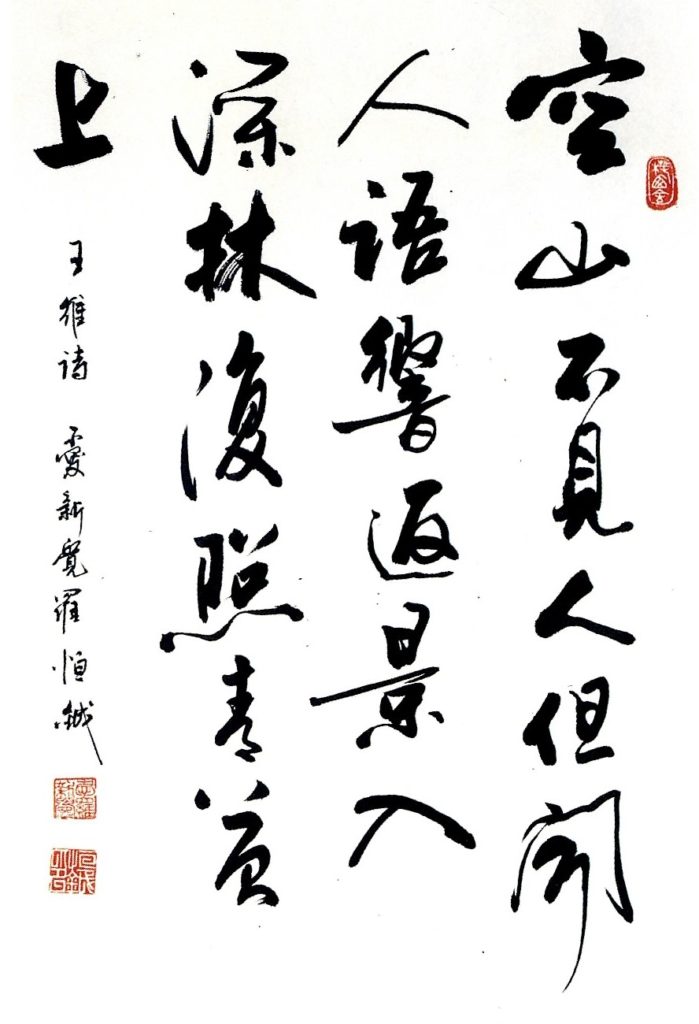 空山不見人但聞
人語響返景入
深林復照青苔
上
王維詩 愛新覺羅恒